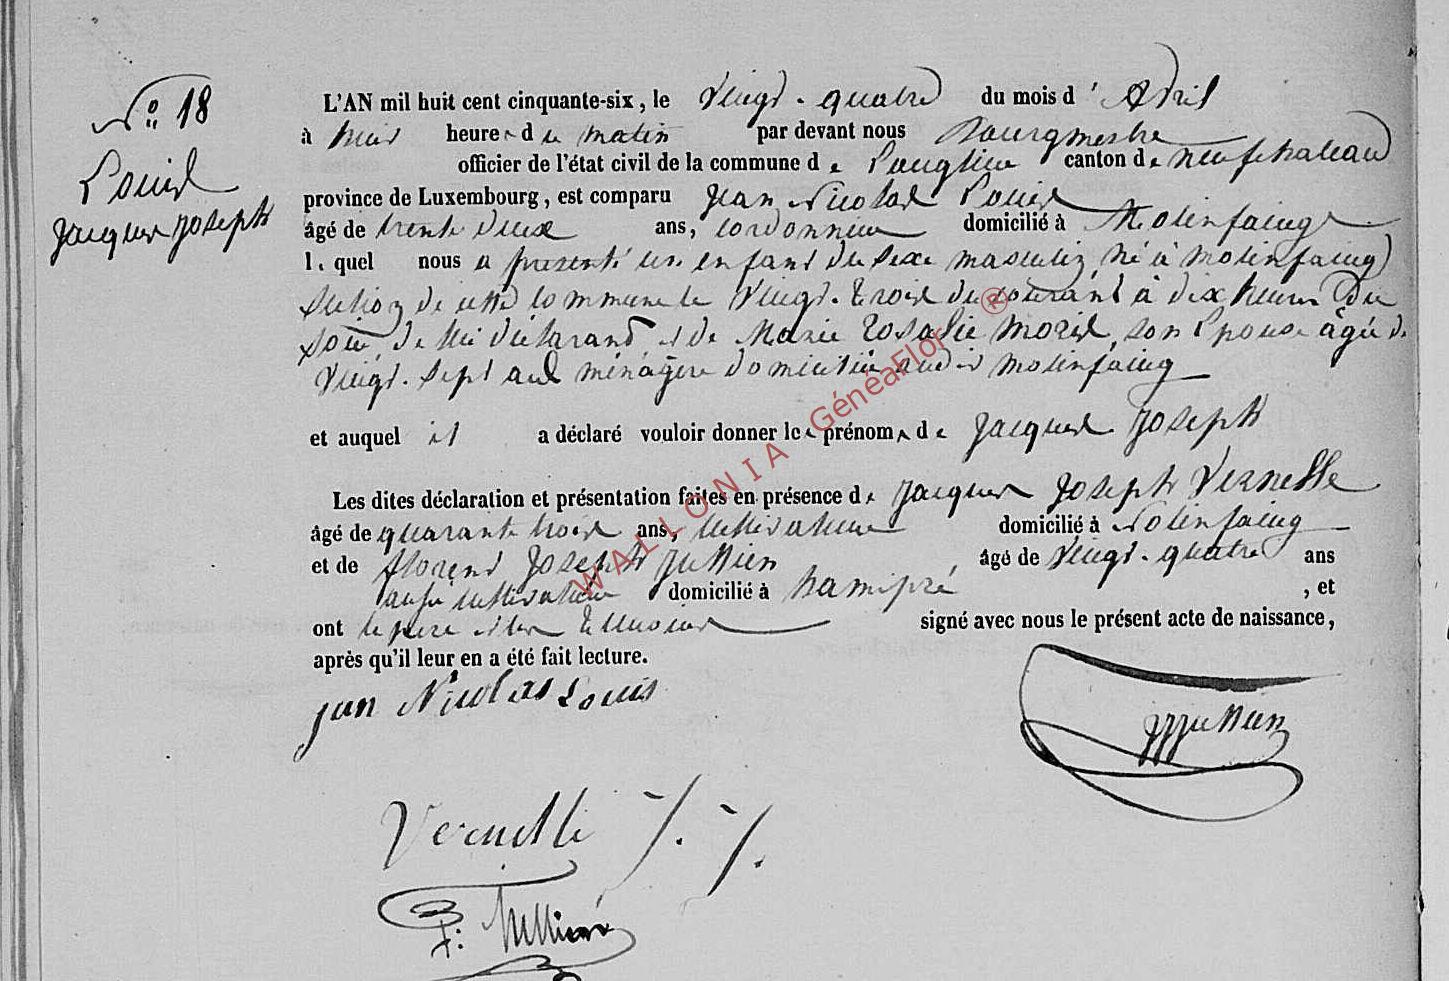 N° 18
Louis
Jacques Joseph
L'AN mil huit cent cinquante-six, le Vingt-quatre du mois d' Avril
à huit heures du matin par devant nous Bourgmestre
officier de l'état civil de la commune de Longlier canton de neufchateau
province de Luxembourg, est comparu Jean Nicolas Louis
âgé de trente deux ans, cordonnier domicilié à Molinfaing
lequel nous a présenté un enfant du sexe masculin, né à molinfaing
section de cette commune le Vingt-trois du courant à dix heures Du
soir, de lui déclarant et de Marie Rosalie Moris, son Epouse âgée de
Vingt-sept ans ménagère domiciliée audit molinfaing
et auquel il a déclaré vouloir donner les prénoms de Jacques Joseph
Les dites déclaration et présentation faites en présence de Jacques Joseph Vernelle
âgé de quarante trois ans, cultivateur domicilié à Molinfaing
et de florent Joseph Jullien, âgé de Vingt-quatre ans
aussi cultivateur domicilié à hamipré, et
ont le père et les Témoins signé avec nous le présent acte de naissance,
après qu'il leur en a été fait lecture.
jean Nicolas Louis
JJJullien
Vernelle J. J.
F: Jullien
WALLONIA GénéaFlor ®